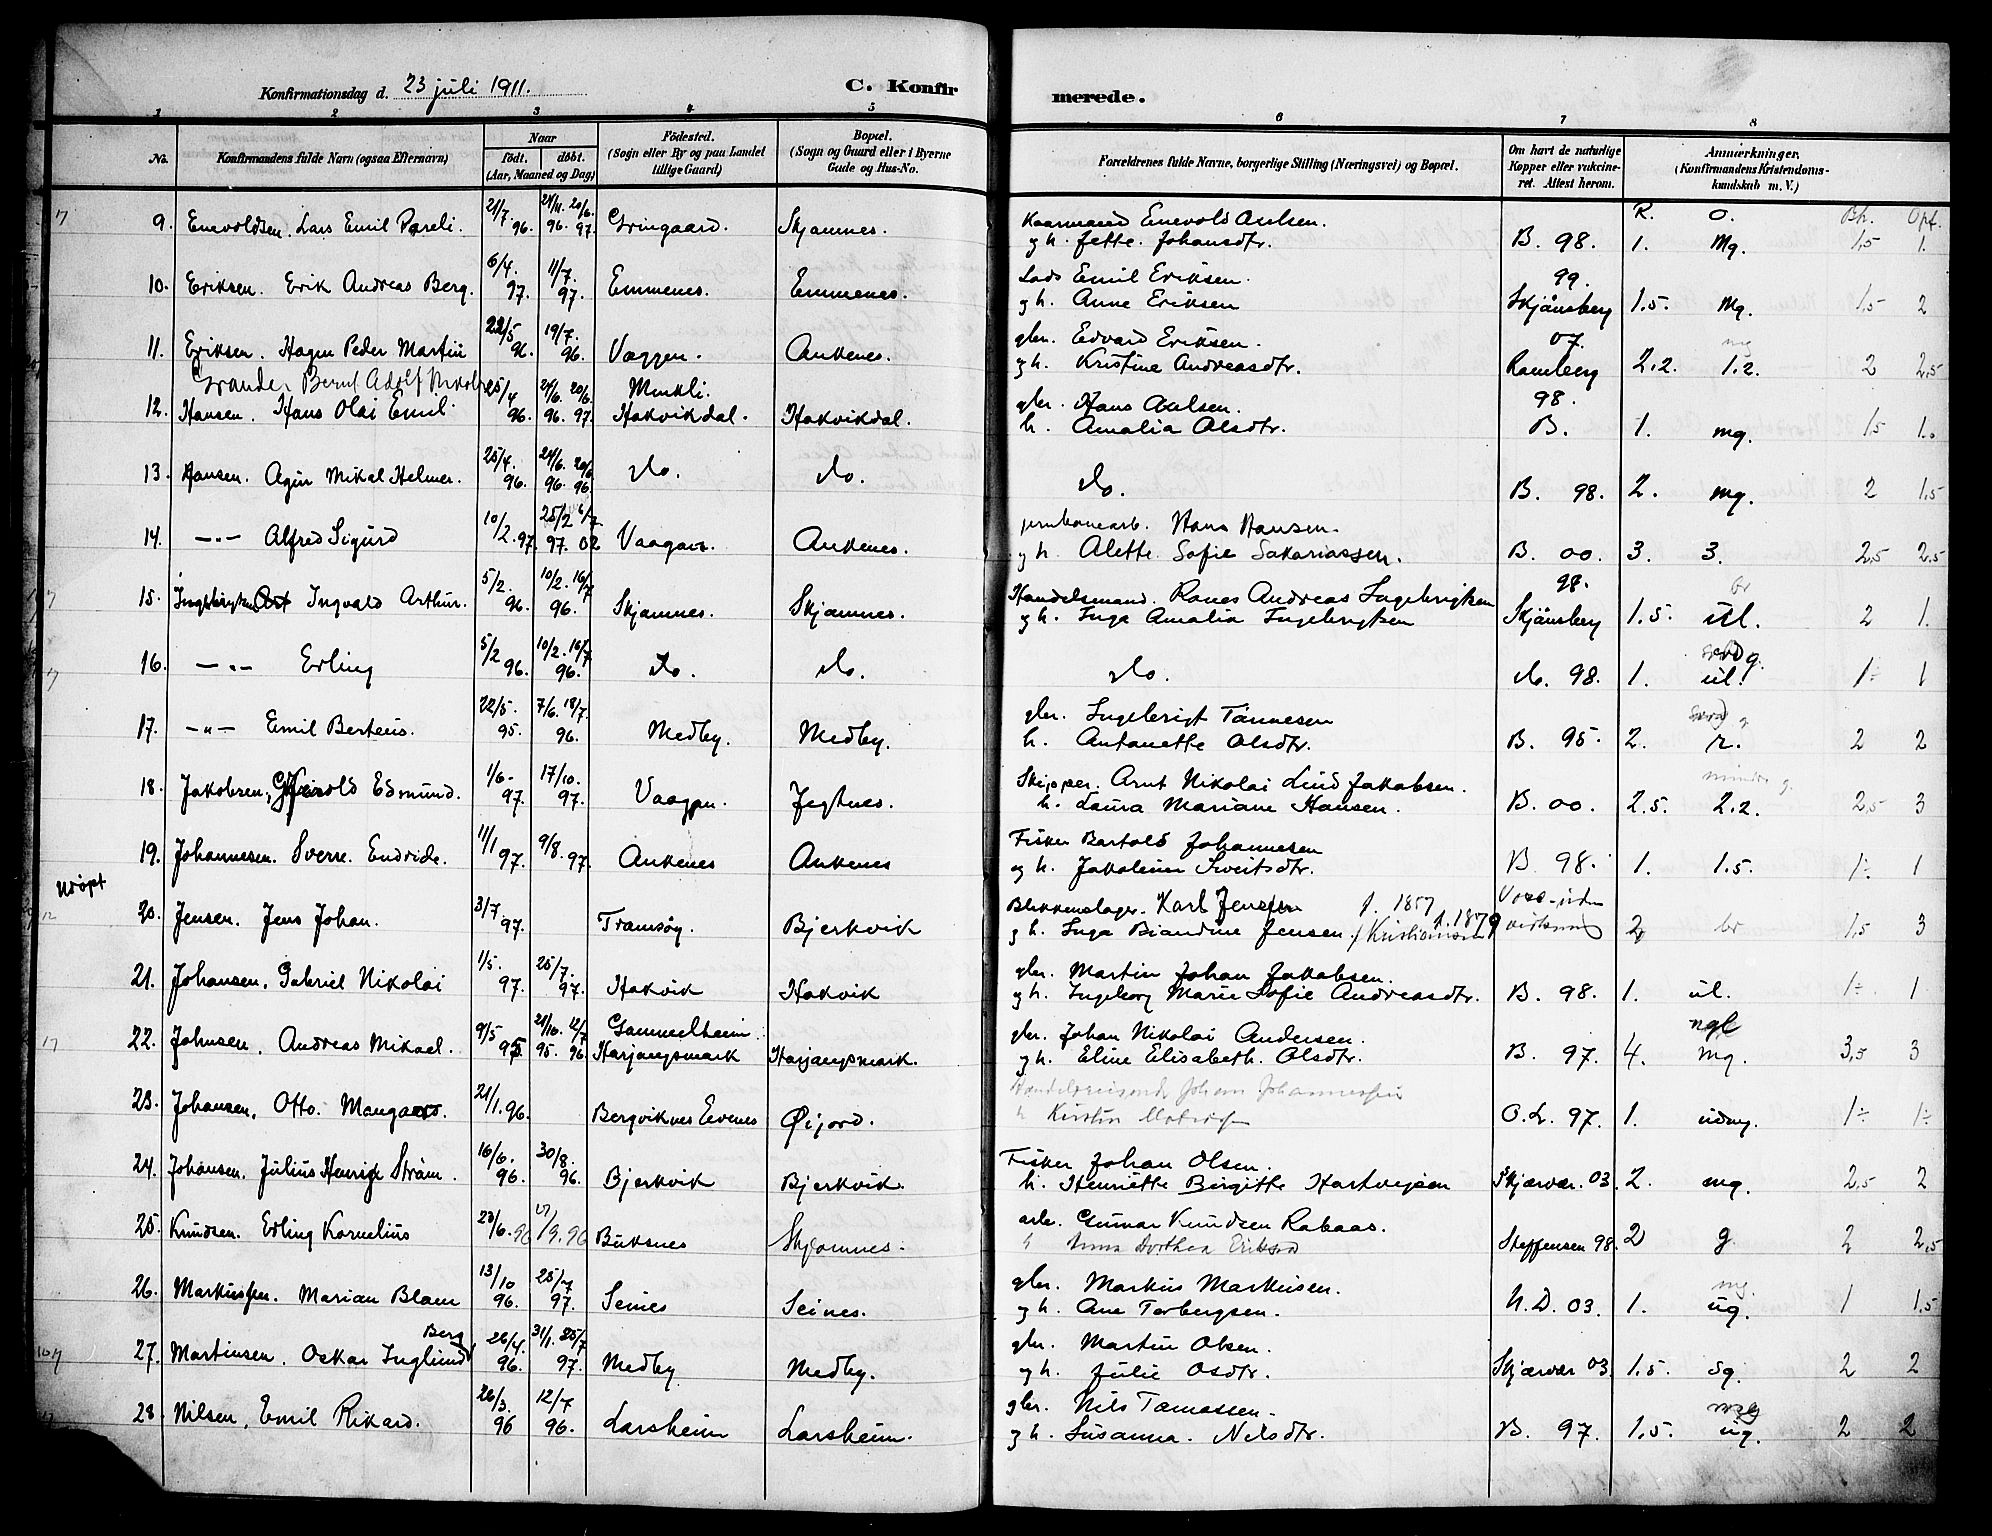 Konfirmationsdag d. 23 juli 1911. C. Konfirmerede.
1 2 3 4 5 6 7 8
No. Konfirmandens fulde Navn (ogsaa Efternavn) Naar født. døbt. (Aar, Maaned og Dag) Fødested. (Sogn eller By og paa Landet tillige Gaard) Bopæl. (Sogn og Gaard eller i Byerne Gade og Hus-No. Forældrenes fulde Navne, borgerlige Stilling (Næringsvei) og Bopæl. Om havt de naturlige Kopper eller vakcineret. Attest herom. Anmærkninger. (Konfirmandens Kristendomskundskab m. V.)
R. O. Bh. Opf.
9. Enevoldsen. Lars Emil Pareli. 21/7. 96. 24/11. 96. 20/6. 97. Gringaard. Skjomnes. Enevold Axelsen.
g. h. Jette. Johansdtr. B. 98. 1. Mg. 1,5 1.
10. Eriksen. Erik Andreas Berg. 6/4. 97. 11/7. 97. Emmenes. Emmenes. Lods Emil Eriksen. 99.
g h. Anne Eriksen Skjånsberg 1.5. Mg. 1,5 2
11. Eriksen. Hagen Peder Martin 22/5 96. 19/7. 96. Vaggen. Ankenes. gbr. Edvard Eriksen. 07.
g h. Kristine Andreasdtr. Ramberg 2.2. 1.2. mg 2 2,5
Grande. Bernt Adolf Merkli.
12. Hansen. Hans Olai Emil. 25/4 96. 24/6. 96. 20/6. 97. Hakvikdal. Hakvikdal. gbr. Hans Axelsen. 98.
h. Amalia Olsdtr. B. 1. mg. 1,5 1.
13. Hansen. Agin Mikal Helmer. 25/4. 96. 24/6. 96. 20/6 96. do. do. do. B. 98. 2. mg. 2 1,5
14. —"— Alfred Sigurd 10/2. 97. 25/2 97. 02 Ankenes. jernbanearb. Hans Hansen.
g h. Alette. Sofie Sakariassen. B. 00. 3. 3. 2,5 2,5
15. Ingvald Arthur. 5/2. 96. 10/2. 16/7 96. Skjomnes. Skjomnes. Handelsmand. Ranes Andreas Ingebrigtsen 98. br
g h. Inga Amalia Ingebrigtsen Skjånsberg 1.5. utl. 2 1.
16. —"— Erling 5/2 96. 10/2. 16/7 96. do. do. do. do. 98. 1. ul. 1÷ 1
17. —"— Emil Berteus. 22/5. 95. 7/6. 18/7. 96. Medby. Medby. gbr. Ingebrigt Tønnesen
h. Antonette Olsdtr. B. 95. 2. 2. 2 2
18. Jakobsen, Edmund. 1/6- 97. 17/10. 97. Vaaggen. Jegtnes. Skipper. Arnt Nikolai Lind Jakobsen. mindre g
h. Laura Mariane Hansen. B. 00. 2.5. 2.2. 2,5 3
19. Johannesen. Sverre. Endride. 11/1 97. 9/8. 97. Ankenes Ankenes Fisker Bartold Johannesen
og h. Jakobine Sivertsdtr. B. 98. 1. 1.5. 1÷ 1
udøpt
20. Jensen. Jens Johan. 3/7. 97. Tromsøy. Bjerkvik Blikkenslager. Karl Jensen f. 1857
g h. Inga Biandine Jensen. f. 1879 2 br 1,5 3
21. Johansen. Gabriel Nikolai 1/5. 97. 25/7. 97. Hakvik Hakvik gbr. Martin Johan Jakobsen.
og h. Ingeborg Marie Sofie Andreasdtr. B. 98. 1. ul. 1÷ 1
22. Johnsen. Andreas Mikael. 9/5 95 21/10. 95. 12/7 96 Gammelheim Harjangsmark Harjangsmark. gbr. Johan Nikolai Andersen. ngl
g h. Eline Elisabeth. Olsdtr. B. 97. 4. mg. 3,5 3
23. Johansen. Otto. Mangaard. 21/1. 96. Bergviknes Evenes Øijord. Handelsreisende Johan Johannessen
h Kirstin O.L. 97. 1. udmg. 1÷ 1÷
24. Johansen. Julius Henrik Strøm. 16/6. 96. 30/8. 96. Bjerkvik Bjerkvik. Fisker Johan Olsen.
h. Henriette Birgitte Hartvigsen Skjærvær. 03. 2. mg. 2,5 2
25. Knudsen. Erling Kornelius 23/6. 96 /9. 96 Buksnes Skjomnes. arb. Gunnar Knudsen Rabaas.
h Anna Dorthea Eriksen Steffensen 98. 2 g 2 2,5
26. Markussen. Marian Blom 13/10 96. 25/7 97. Seines Seines. gbr. Markus Markusen. mg.
g h. Ane Torbergsen. N.D. 03. 1. ug. 1 1,5
Berg
27. Martinsen. Oskar Inglund 26/4. 96. 31/1. 25/7 97. Medby Medby. gbr. Martin Olsen.
og h. Julie Osdtr. Skjærvær 03. 1.5. sg. 2 2
28. Nilsen, Emil Rikard. 26/3. 96 12/7 96. Larsheim Larsheim. gbr. Nils Tomassen.
g h. Susanna. Nilsdtr. B. 97. 1.5. ug. 2 2